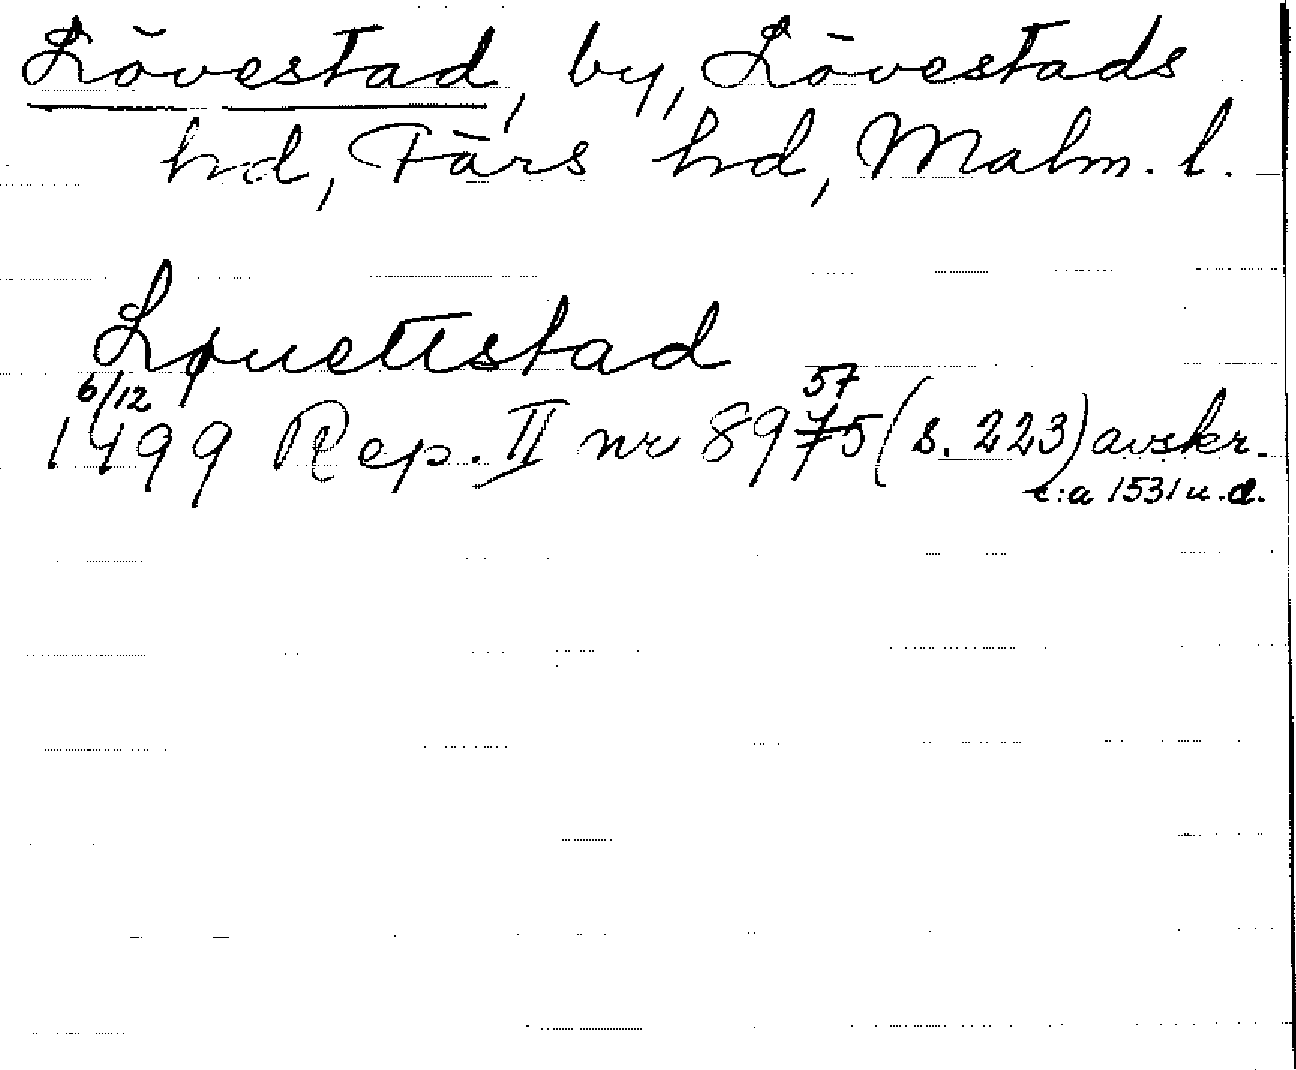 Lövestad, by, Lövestads
hd, Färs hd, Malm. l.
Løuettstad
6/12 57
1499 Rep. II nr 8975 (s. 223) avskr.
c:a 1531 u.d.